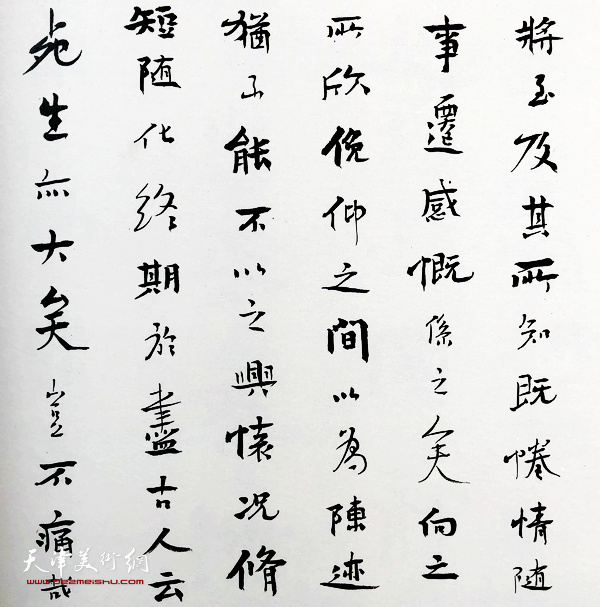 將至及其所知既惓情随
事遷感慨係之矣向之
所欣俛仰之間以為陳迹
猶不能不以之興懷况脩
短随化終期於盡古人云
死生亦大矣豈不痛哉
天津美術網
www.022meishu.com